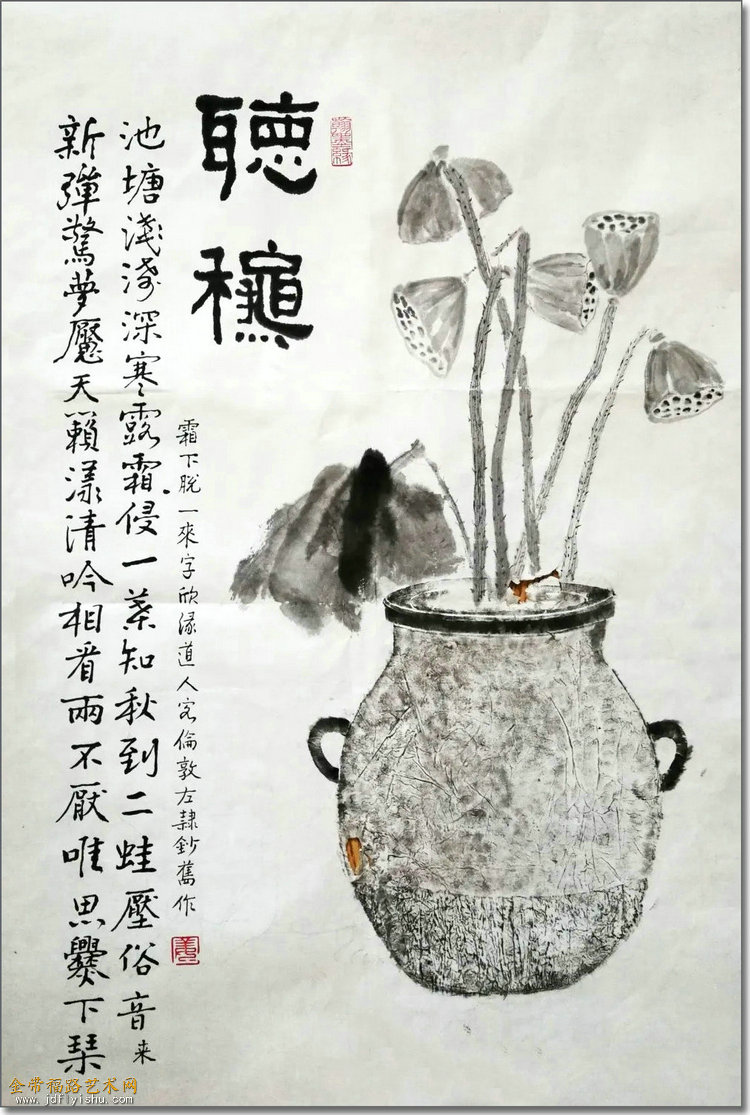 聽穐
池塘淺淺深寒露霜侵一葉知秋到二蛙壓俗音来
新彈驚夢魘天籟漾清吟相看兩不厭唯思爨下琴
霜下脫一來字欣道人客倫敦左隷鈔舊作
金带福路艺术网
www.jdflyishu.com